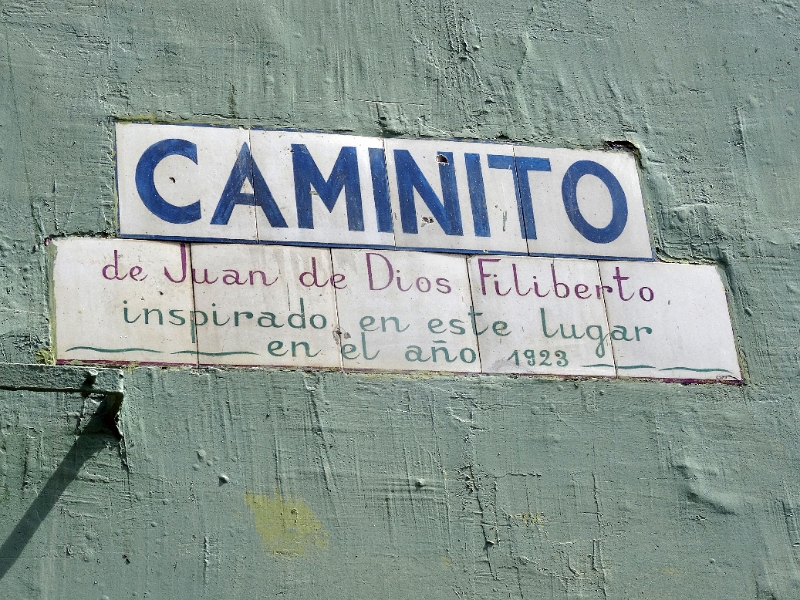 CAMINITO
de Juan de Dios Filiberto
inspirado en este lugar
en el año 1923